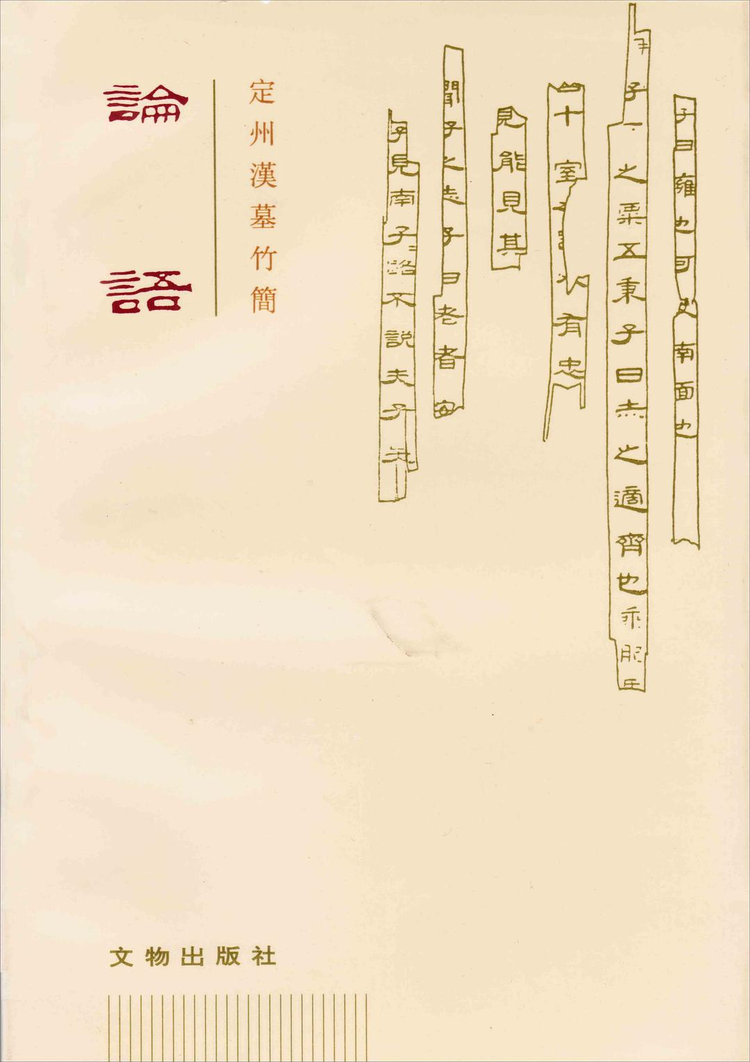 論語
定州漢墓竹簡
子曰雍也可使南面也
子之粟五秉子曰赤之適齊也乘肥
四十室有忠
見能見其
聞子之志子曰老者安
子見南子路不說夫子矢
文物出版社